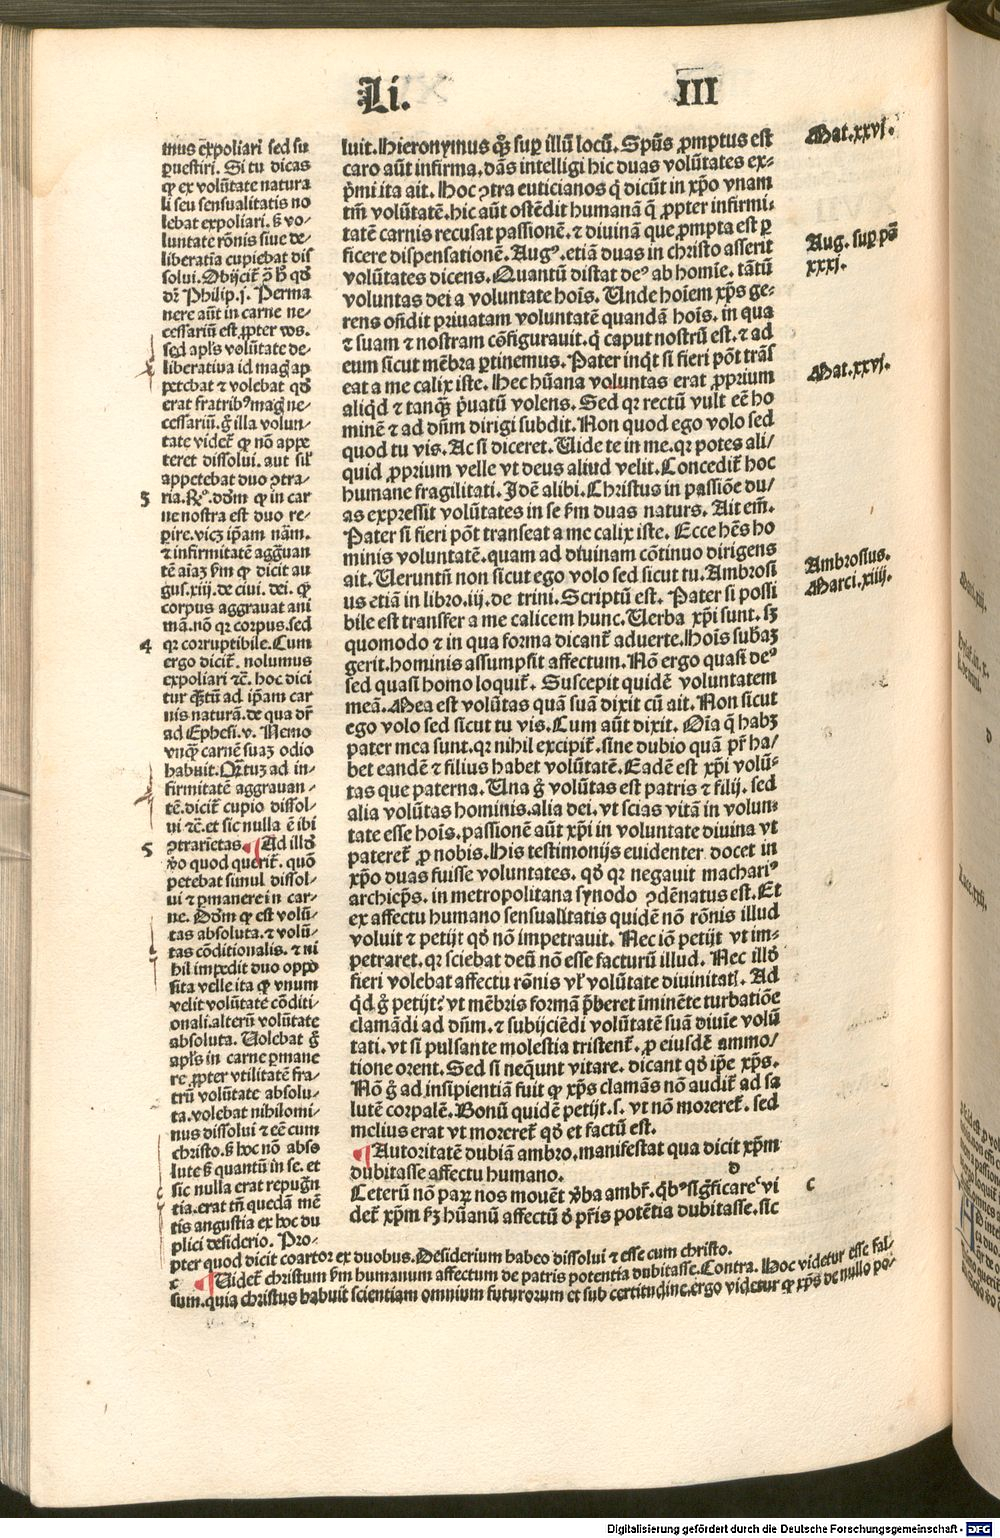 Li.
III
mus expoliari sed su
puestiri. Si tu dicas
ꝙ ex volūtate natura
li seu sensualitatis no
lebat expoliari. s̄ vo⸗
luntate rōnis siue de⸗
liberatia cupiebat dis
solui. Obijcit̄ ꝯ̄ h̄ qđ
dr̄ Philip.j. Perma
nere aūt in carne ne⸗
cessariū est ꝓpter vos.
sed apl̄s volūtate de⸗
liberatiua id maḡ ap
petebat ⁊ volebat qđ
erat fratribꝰ maḡ ne⸗
cessariū. ḡ illa volun⸗
tate videt̄ ꝙ nō appe
teret dissolui. aut sil̄
appetebat duo ↄtra⸗
5 ria. Rͦ. dđm ꝙ in car
ne nostra est duo re⸗
perire. vicꝫ ip̄am nām.
⁊ infirmitatē aggrauan
tē aīaꝫ s̄m ꝙ dicit au
gus.xiij.de ciui. dei. ꝙ
corpus aggrauat ani
mā. nō qꝛ corpus. sed
4 qꝛ corruptibile. Cum
ergo dicit̄. nolumus
expoliari ⁊c̄. hoc dici
tur quātū ad ip̄am car
nis naturā. de qua dr̄
ad Ephesi.v. Nemo
vnq̄ carnē suaꝫ odio
habuit. Q̄tuꝫ ad in⸗
firmitatē aggrauan⸗
tē. dicit̄ cupio dissol⸗
ui ⁊c̄. et sic nulla ē ibi
5 ↄtrarietas. ¶ Ad illđ
v̄o quod querit̄. quō
petebat simul dissol⸗
ui ⁊ ꝑmanere in car⸗
ne. Dđm ꝙ est volū⸗
tas absoluta. ⁊ volū⸗
tas cōditionalis. ⁊ ni
hil impedit duo oppo
sita velle ita ꝙ vnum
velit volūtate cōditi⸗
onali. alterū volūtate
absoluta. Volebat ḡ
apl̄s in carne ꝑmane
re ꝓpter vtilitatē fra⸗
trū volūtate absolu⸗
ta. volebat nihilomi⸗
nus dissolui ⁊ eē cum
christo. s̄ hoc nō abso
lute s̄ quantū in se. et
sic nulla erat repugn̄
tia. erat tn̄ quedā mē
tis angustia ex hoc du
plici desiderio. Pro⸗
pter quod dicit coartor ex duobus. Desiderium habeo dissolui ⁊ esse cum christo.
c ¶ Videt̄ christum s̄m humanum affectum de patris potentia dubitasse. Contra. Hoc videtur esse fal⸗
sum. quia christus habuit scientiam omnium futurorum et sub certitudine. ergo videtur ꝙ xp̄s de nullo po⸗
luit. Hieronymus qq̄ suꝑ illū locū. Spūs ꝓmptus est
caro aūt infirma. dās intelligi hic duas volūtates ex⸗
p̄mi ita ait. Hoc ↄtra euticianos q̄ dicūt in xp̄o vnam
tm̄ volūtatē. hic aūt ostēdit humanā q̄ ꝓpter infirmi⸗
tatē carnis recusat passionē. ⁊ diuinā que ꝓmpta est ꝑ
ficere dispensationē. Augꝰ. etiā duas in christo asserit
volūtates dicens. Quantū distat deꝰ ab homīe. tātū
voluntas dei a voluntate hoīs. Unde hoīem xp̄s ge⸗
rens ondit priuatam voluntatē quandā hoīs. in qua
⁊ suam ⁊ nostram cōfigurauit. q̄ caput nostrū est. ⁊ ad
eum sicut mēbra ꝑtinemus. Pater inqt̄ si fieri pōt trās
eat a me calix iste. Hec hūana voluntas erat ꝓprium
aliqd ⁊ tanq̄ p̄uatū volens. Sed qꝛ rectū vult eē ho
minē ⁊ ad dn̄m dirigi subdit. Non quod ego volo sed
quod tu vis. Ac si diceret. Uide te in me. qꝛ potes ali⸗
quid ꝓprium velle vt deus aliud velit. Concedit̄ hoc
humane fragilitati. Idē alibi. Christus in passiōe du⸗
as expressit volūtates in se s̄m duas naturs. Ait em̄.
Pater si fieri pōt transeat a me calix iste. Ecce hēs ho
minis voluntatē. quam ad diuinam cōtinuo dirigens
ait. Ueruntn̄ non sicut ego volo sed sicut tu. Ambrosi
us etiā in libro. iij. de trini. Scriptū est. Pater si possi
bile est transfer a me calicem hunc. Uerba xp̄i sunt. sꝫ
quomodo ⁊ in qua forma dicant̄ aduerte. Hoīs sub̄aꝫ
gerit. hominis assumpsit affectum. Nō ergo quasi deꝰ
sed quasi homo loquit̄. Suscepit quidē voluntatem
meā. Mea est volūtas quā suā dixit cū ait. Non sicut
ego volo sed sicut tu vis. Cum aūt dixit. Oīa q̄ habꝫ
pater mea sunt. qꝛ nihil excipit̄. sine dubio quā pr̄ ha⸗
bet eandē ⁊ filius habet volūtatē. Eadē est xp̄i volū⸗
tas que paterna. Una ḡ volūtas est patris ⁊ filij. sed
alia volūtas hominis. alia dei. vt scias vitā in volun⸗
tate esse hoīs. passionē aūt xp̄i in voluntate diuina vt
pateret̄ ꝓ nobis. His testimonijs euidenter docet in
xp̄o duas fuisse voluntates. qđ qꝛ negauit machariꝰ
archiep̄s. in metropolitana synodo ↄdēnatus est. Et
ex affectu humano sensualitatis quidē nō rōnis illud
voluit ⁊ petijt qđ nō impetrauit. Nec iō petijt vt im⸗
petraret. qꝛ sciebat deū nō esse facturū illud. Nec illđ
fieri volebat affectu rōnis vl̄ volūtate diuinitatꝭ. Ad
qd̄ ḡ petijt? vt mēbris formā p̄beret īminēte turbatiōe
clamādi ad dn̄m. ⁊ subijciēdi volūtatē suā diuīe volū
tati. vt si pulsante molestia tristent̄. ꝓ eiusdē ammo⸗
tione orent. Sed si neqūnt vitare. dicant qđ ip̄e xp̄s.
Nō ḡ ad insipientiā fuit ꝙ xp̄s clamās nō audit̄ ad sa
lutē corꝑalē. Bonū quidē petijt. s. vt nō moreret̄. sed
melius erat vt moreret̄ qđ et factū est.
¶ Autoritatē dubiā ambro. manifestat qua dicit xp̄m
dubitasse affectu humano. d
Ceterū nō paꝝ nos mouēt v̄ba ambr̄. qbꝰ siḡficare vi c
det̄ xp̄m s̄ꝫ hūanū affectū d̄ pr̄is potētia dubitasse. sic
Mat.xxvj.
Aug. suꝑ ps̄
xxxj.
Mat.xxvj.
Ambrosius.
Marci.xiiij.
Digitalisierung gefördert durch die Deutsche Forschungsgemeinschaft - DFG